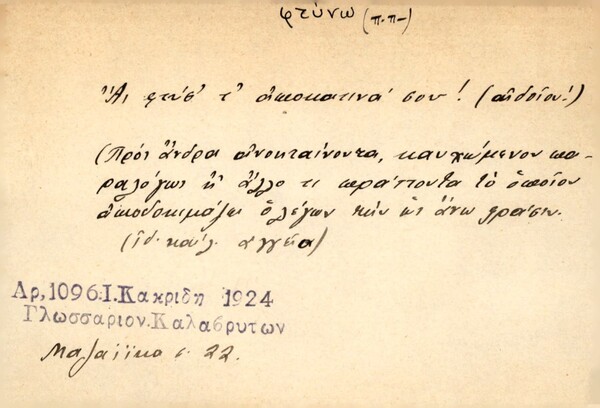 φτύνω (π.π-)
Ἄι φτύσ' τ' ἀποκατινά σου! (αἰδοῖον!)
(Πρὸς ἄνδρα καυχώμενον πα-
ραλόγως ἢ ἄλλο τι πράττοντα τὸ ὁποῖον
ἀποδοκιμάζει ὁ λέγων τὴν ὡς ἄνω φράσιν.
(ἰδ. καὶ λ. ἀγγεῖα)
Αρ, 1096.Ι. Κακριδη 1924
Γλωσσαριον.Καλαβρυτων
Μαζαίϊκα σ. 22.